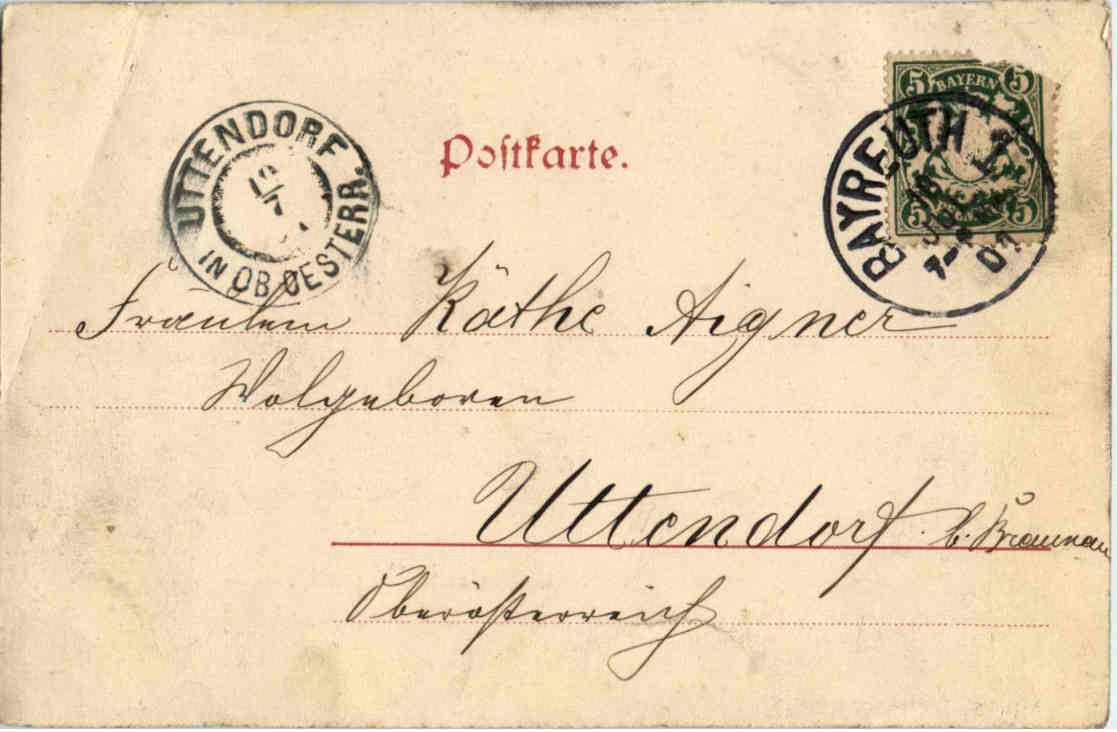 Postkarte.
BAYERN
5 5
5 5
BAYREUTH 1
7-
UTTENDORF
IN OB. OESTERR.
Fräulein Käthe Aigner
Wolgeboren
Uttendorf b. Braunau
Oberösterreich